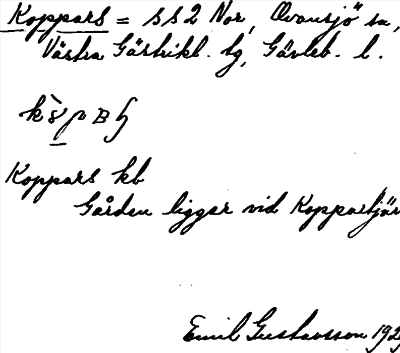 Koppars = SS2 Nor, Ovansjö sn,
Västra Gästrikl. tg, Gävleb. l.
Koppars kb
Gården ligger vid Koppartjär
Emil Gustavsson 192